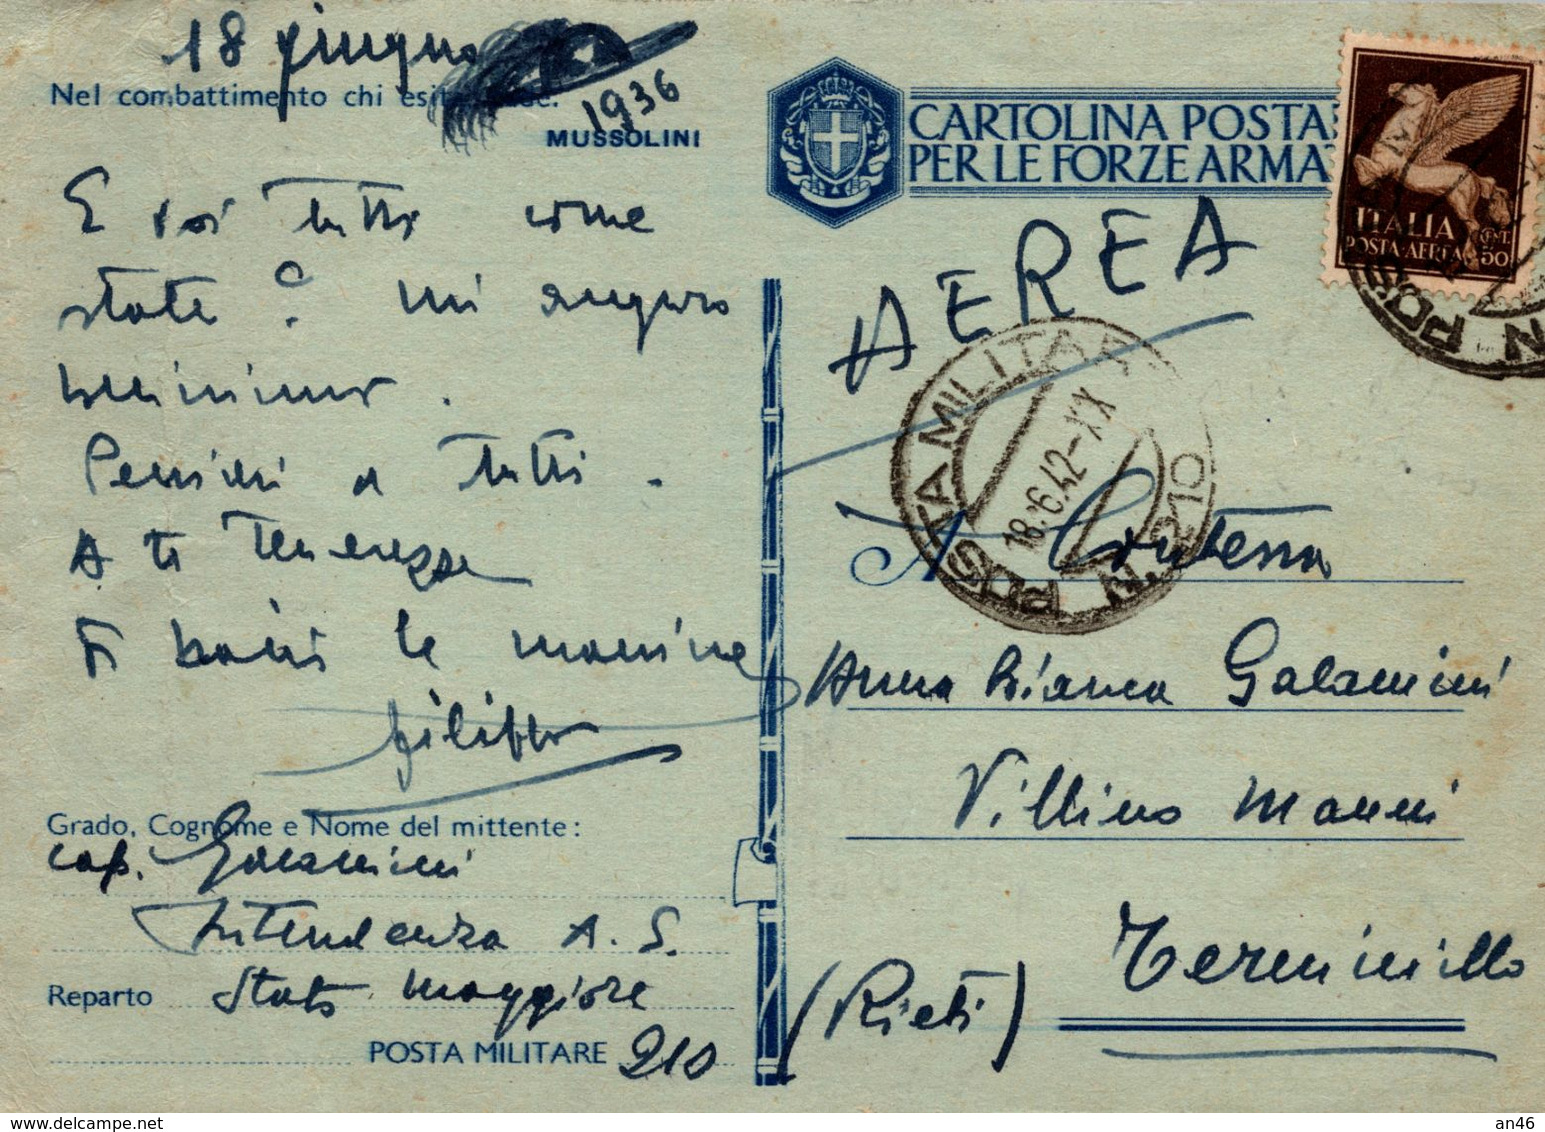 18 giugno
1936
Nel combattimento chi esita
MUSSOLINI
E voi tutti come
state? mi auguro
benissimo.
Pensieri a tutti.
A te tenerezze
Ti bacio le manine
Filippo
Grado, Cognome e Nome del mittente:
cap. Galamini
Intendenza A. S.
Reparto Stato Maggiore
POSTA MILITARE 210
CARTOLINA POSTA
PER LE FORZE ARMA
ITALIA
POSTA·AEREA
CENT. 50
AEREA
POSTA MILITARE
N. 210
18.6.42-XX
N. POS
A Contessa
Anna Bianca Galamini
Villino Manni
Terminillo
(Rieti)
an46